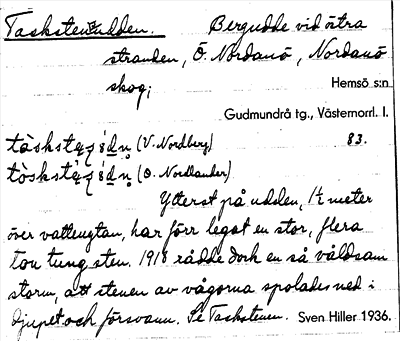 Taskstensudden. Bergudde vid östra
stranden, Ö. Nordanö, Nordanö
skog;
Hemsö s:n
Gudmundrå tg., Västernorrl. l.
(V. Nordberg) 83.
(O. Nordlander)
Ytterst på udden, 1½ meter
över vattenytan, har förr legat en stor, flera
ton tung sten. 1918 rådde dock en så våldsam
storm, att stenen av vågorna spolades ned i
djupet och försvann. Se Taskstenen. Sven Hiller 1936.